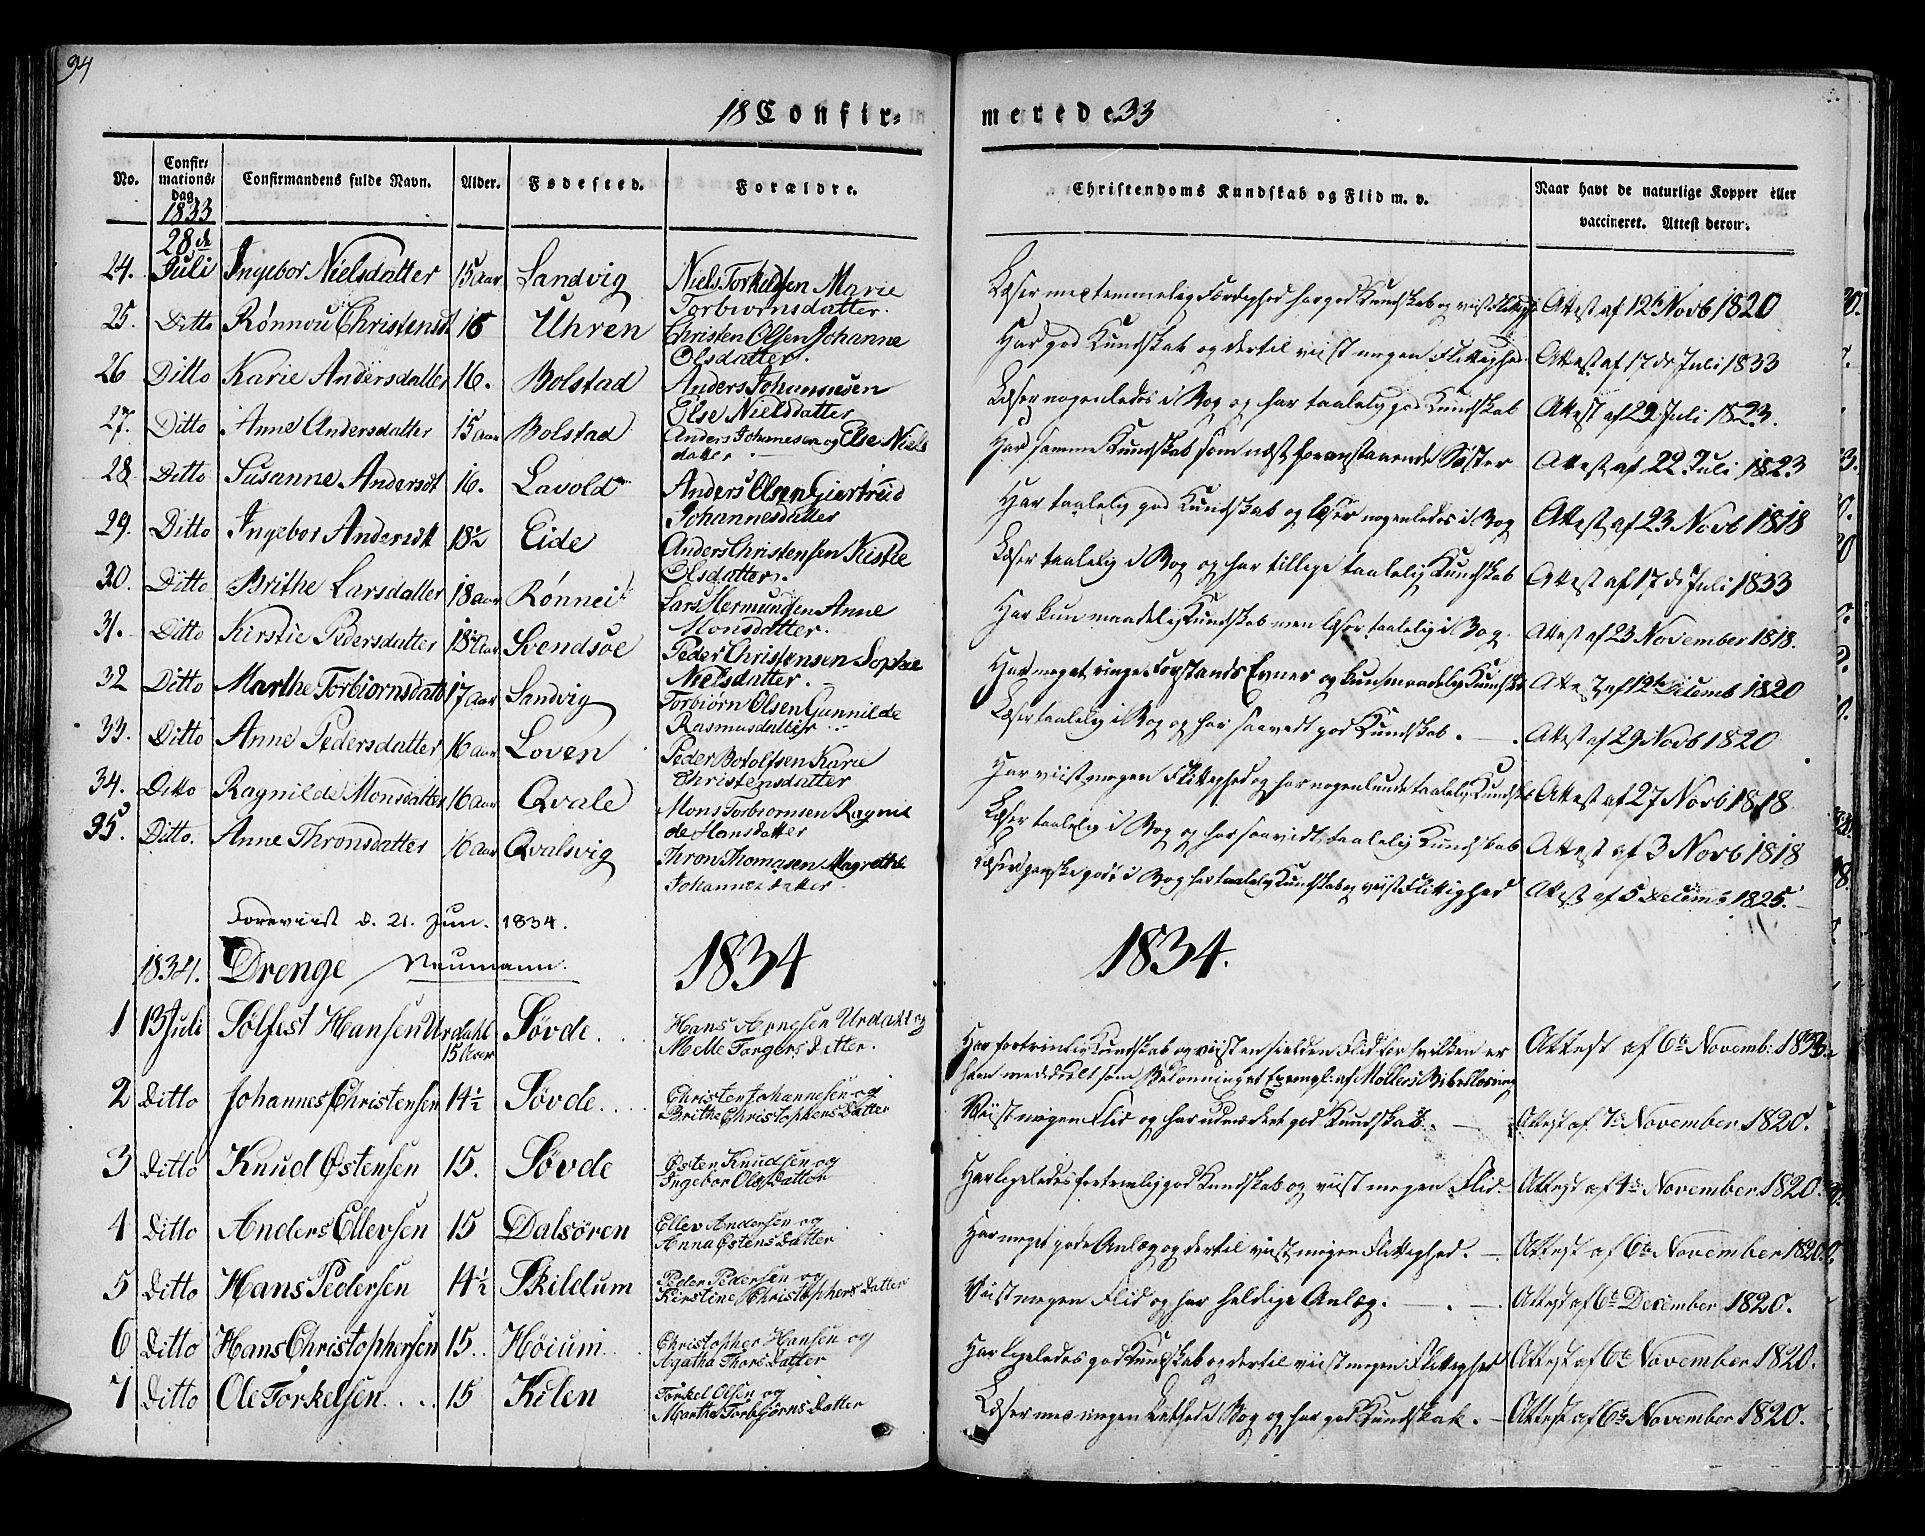 94
18 Confir-
merede 33
No.
Confir-
mations-
dag.
Confirmandens fulde Navn.
Alder.
Fødested.
Forældre.
Christendoms Kundskab og Flid m. v.
Naar havt de naturlige Kopper eller
vaccineret. Attest derom.
1833
28de
24. Juli Ingebor Nielsdatter 15 Aar Sandvig Niels Torkeldsen Marie
Torbiornsdatter.
Læser med temmelig Færdighed har god Kundskab og viist Flittighed Attest af 12te Novb 1820
25. Ditto Rønnou Christensdt 16 Uhren Christen Olsen Johanne
Olsdatter.
Har god Kundskab og dertil viist megen Flittighed Attest af 17 de Juli 1833
26 Ditto Karie Andersdatter 16. Bolstad Anders Johannesen
Else Nielsdatter
Læser nogenledes i Bog og har taalelig god Kundskab Attest af 22 Juli 1823.
27. Ditto Anne Andersdatter 15 Aar Bolstad Anders Johanesen og Else Niels
datter
Har samme Kundskab som næst foranstaaende Søster Attest af 22 Juli 1823
28 Ditto Susanne Andersdt 16. Lavold Anders Olsen Giertrud
Johannesdatter
Har taalelig god Kundskab og læser nogenledes i Bog Attest af 23 Novb 1818
29. Ditto Ingebor Andersdt 18½ Eide Anders Christensen Kistie
Olsdatter.
Læser taalelig i Bog og har tillige taalelig Kundskab Attest af 17 de Juli 1833
30. Ditto Brithe Larsdatter 18 Aar Rønnei Lars Hermundsen Anne
Monsdatter.
Har kun maadelig Kundskab men læser taalelig i Bog Attest af 23 November 1818.
31. Ditto Kirstie Pedersdatter 18½ Aar Svendsøe Peder Christensen Sophie
Nielsdatter.
Har meget ringe Forstands Evner og kun maadelig Kundskab Attest af 12te Decemb 1820
32 Ditto Marthe Torbiornsdatt 17 Aar Sandvig Torbiørn Olsen Gunnilde
Rasmusdatter
Læser taalelig i Bog og har saavidt god Kundskab. Attest af 29 Novb 1820
33. Ditto Anne Pedersdatter 16 Aar Loven Peder Botolfsen Karie
Christensdatter
Har viist megen Flittighed og har nogenlunde taalelig Kundskab Attest af 27 Novb 1818
34. Ditto Ragnilde Monsdatter 16 Aar Qvale Mons Torbiornsen Ragnil
de Monsdatter
Læser taalelig i Bog og har saavidt taalelig Kundskab Attest af 3 Novb 1818
35. Ditto. Anne Thronsdatter 16 Aar Qvalsvig Thron Thomasen Magrethe
Johannesdatter.
Læser ganske godt i Bog har taalelig Kundskab og viist Flittighed Attest af 5 Decemb 1825.
Foreviist d. 21. Jun. 1834.
Neumann.
1834. Drenge 1834 1834.
1 13 Juli Sølfest Hansen Urdahl 15 Aar Søvde. Hans Arnesen Urdahl og
Mette Torgers Datter.
Har fortrinlig Kundskab og viist en sielden Flid for hvilken er
ham meddeelt som Belønning et Exempl: af Møllers Bibellæsning
Attest af 6te Novemb: 1833.
2 Ditto Johannes Christensen 14½ Søvde. Christen Johannesen og
Brithe Christophers Datter
Viist megen Flid og har udmærket god Kundskab. Attest af 7de November 1820.
3 Ditto Knud Østensen 15. Søvde Østen Knudsen og
Ingebor Olesdatter
Har ligeledes fortrinlig god Kundskab og viist megen Flid. Attest af 4de November 1820.
4 Ditto Anders Ellevsen 15 Dalsøren Ellev Andersen og
Anna Østens Datter
Har meget gode Anlæg og dertil viist megen Flittighed. Attest af 6te November 1820.
5 Ditto Hans Pedersen 14½ Skildum Peder Pedersen og
Kirstine Christophers Datter
Viist megen Flid og har heldige Anlæg. Attest af 6te December 1820.
6 Ditto Hans Christophersen 15. Høium Christopher Hansen og
Agatha Thors Datter
Har ligeledes god Kundskab og dertil viist megen Flittighed Attest af 6te November 1820.
7 Ditto Ole Torkelsen 15 Kilen Torkel Olsen og
Marthe Torbjørns Datter
Læser med megen Lethed i Bog og har god Kundskab. Attest af 6te November 1820.